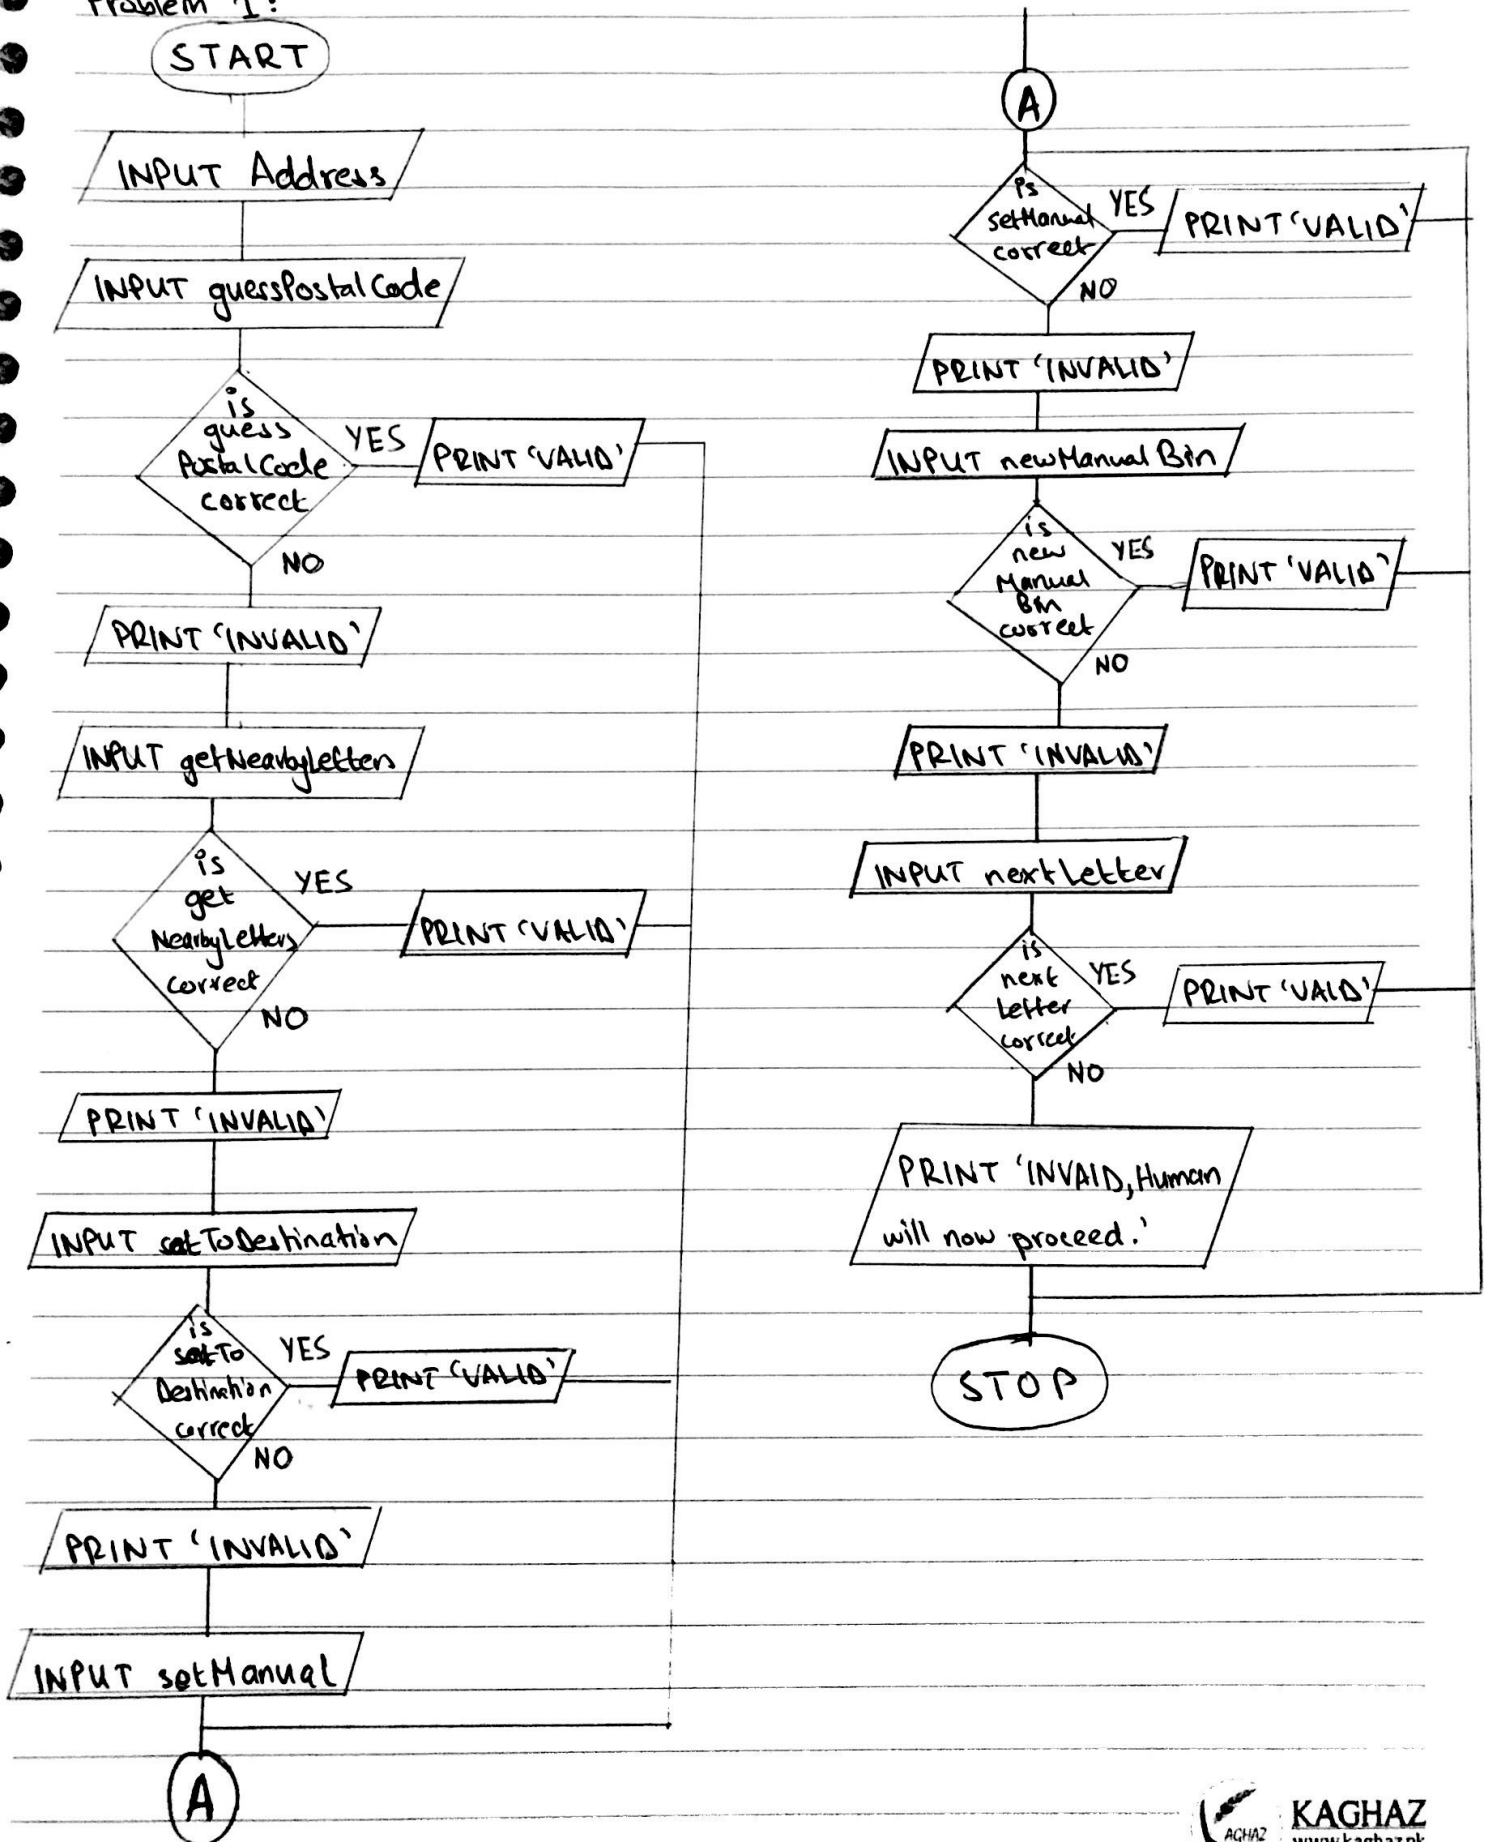 Problem 1:
START
INPUT Address
INPUT guessPostalCode
is
guess
PostalCode
correct
YES
PRINT 'VALID'
NO
PRINT 'INVALID'
INPUT getNearbyLetters
is
get
NearbyLetters
correct
YES
PRINT 'VALID'
NO
PRINT 'INVALID'
INPUT setToDestination
is
setTo
Destination
correct
YES
PRINT 'VALID'
NO
PRINT 'INVALID'
INPUT setManual
A
A
is
setManual
correct
YES
PRINT 'VALID'
NO
PRINT 'INVALID'
INPUT newManualBin
is
new
Manual
Bin
correct
YES
PRINT 'VALID'
NO
PRINT 'INVALID'
INPUT nextLetter
is
next
Letter
correct
YES
PRINT 'VALD'
NO
PRINT 'INVAID, Human
will now proceed.'
STOP
AGHAZ
KAGHAZ
www.kaghaz.pk